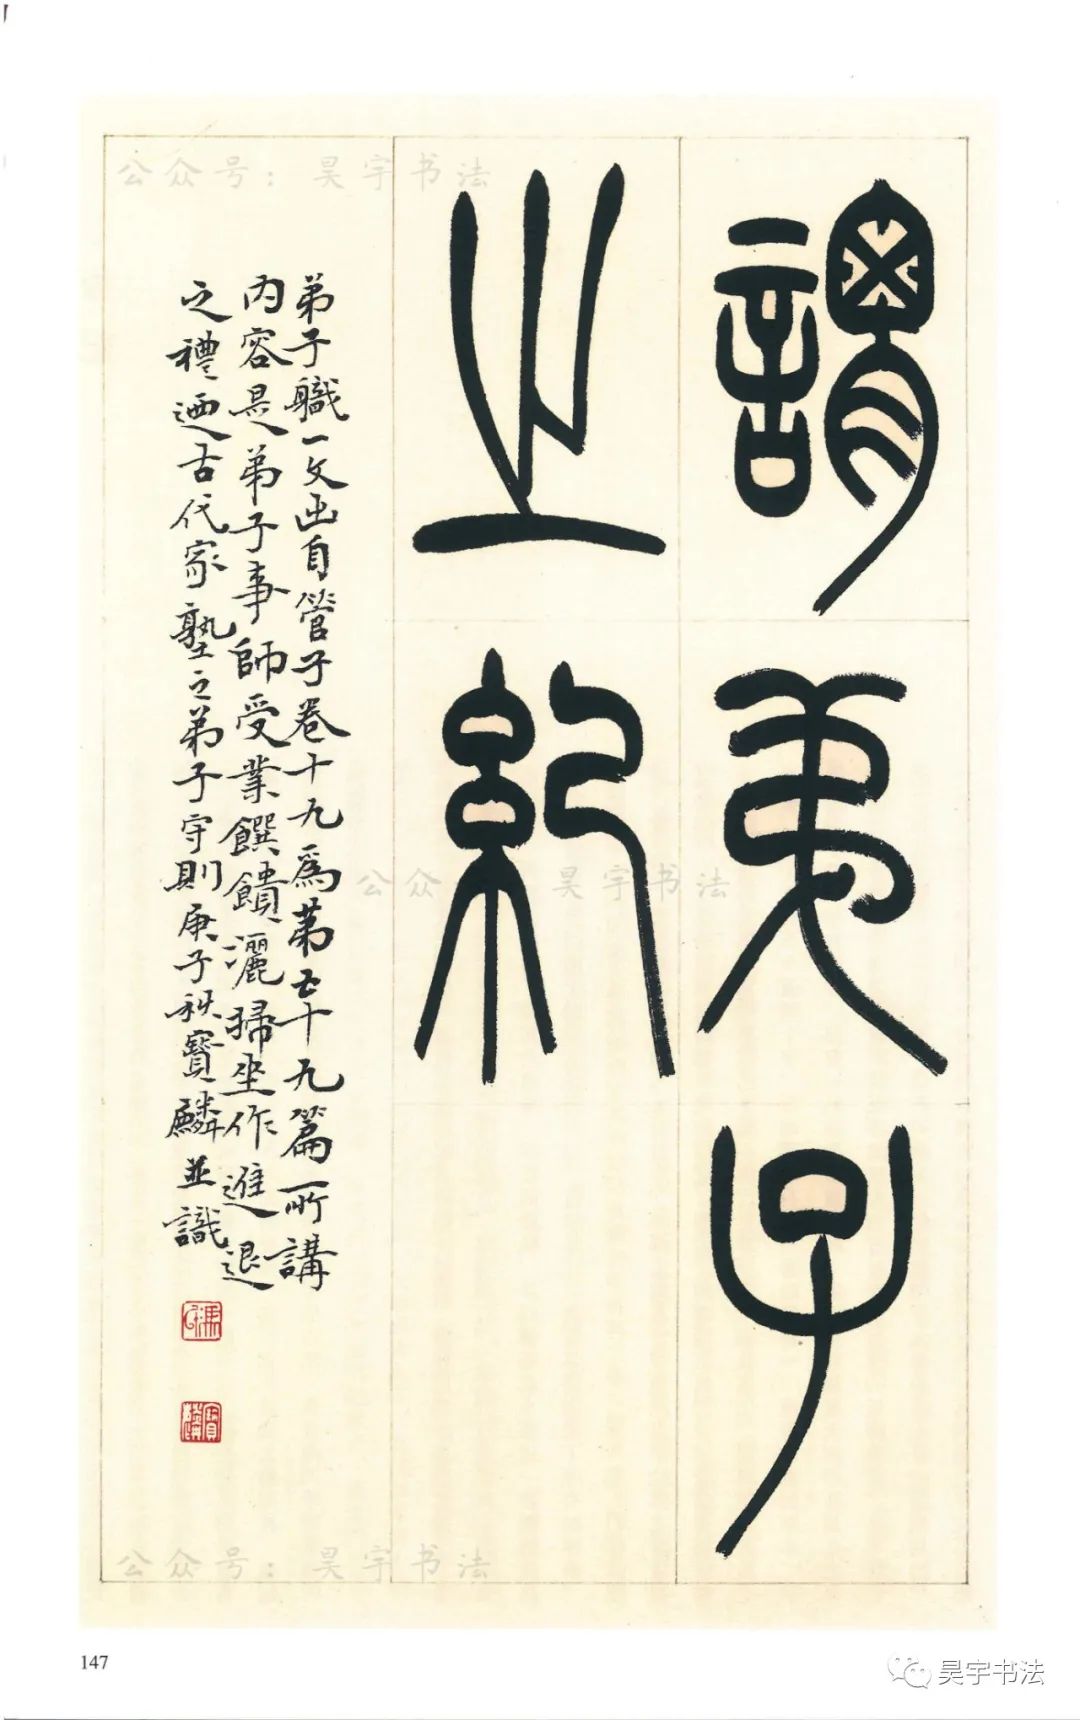 謂弟子
之紀
弟子職一文出自管子卷十九爲第五十九篇所講
内容是弟子事師受業饌饋灑掃坐作進退
之禮迺古代家塾之弟子守則庚子秋寶麟並識
公众号：昊宇书法
公众 昊宇书法
公众号：昊宇书法
147
昊宇书法